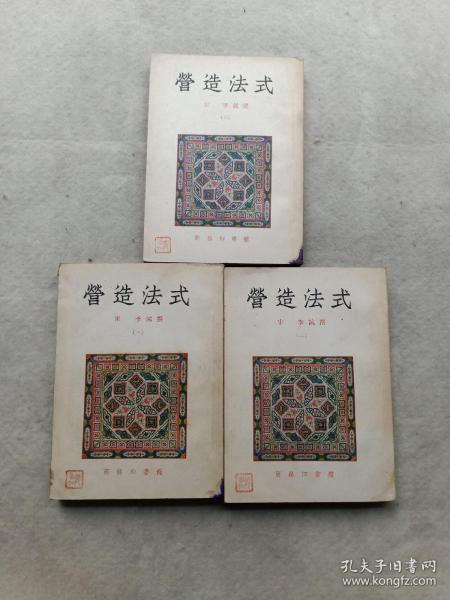 營造法式
宋 李誡撰
(三)
商務印書館
營造法式
宋 李誡撰
(一)
商務印書館
營造法式
宋 李誡撰
(二)
商務印書館
孔夫子旧书网
www.kongfz.com